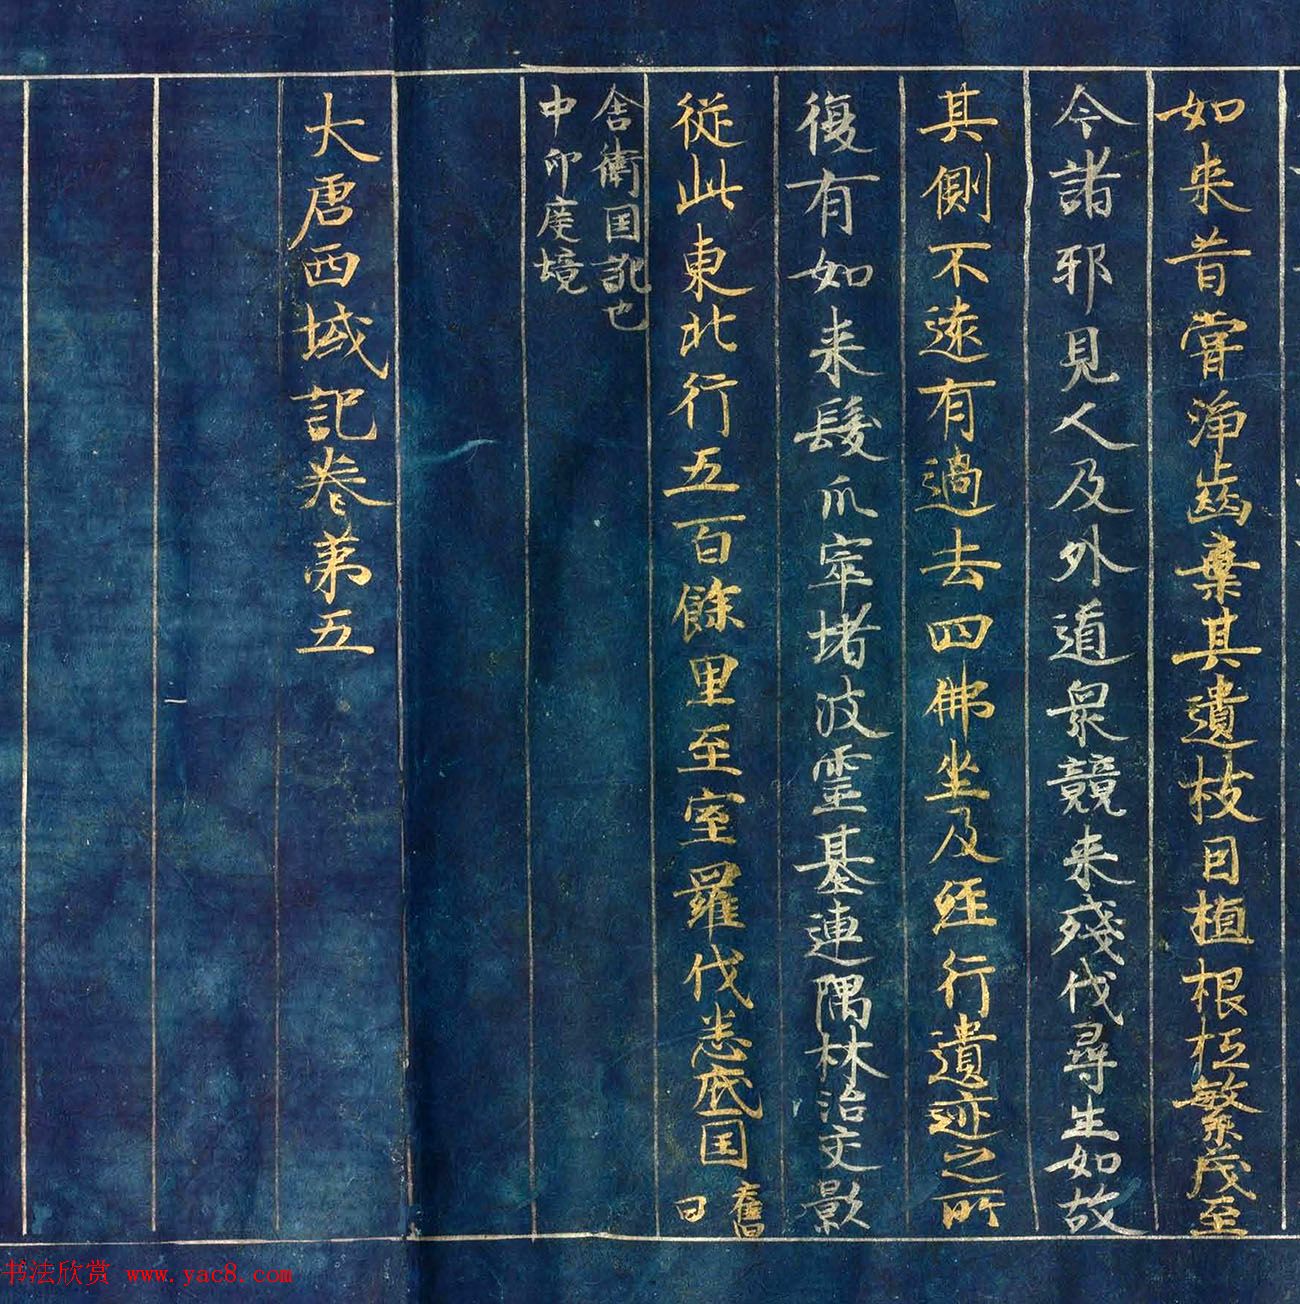 如来昔嘗淨齒棄其遺枝因植根柢繁茂至
今諸邪見人及外道衆競来殘伐尋生如故
其側不遠有過去四佛坐及經行遺迹之所
復有如来髮爪窣堵波靈基連隅林沼交影
從此東北行五百餘里至室羅伐悉底国舊曰
舎衛国訛也
中印度境
大唐西域記卷第五
书法欣赏 www.yac8.com